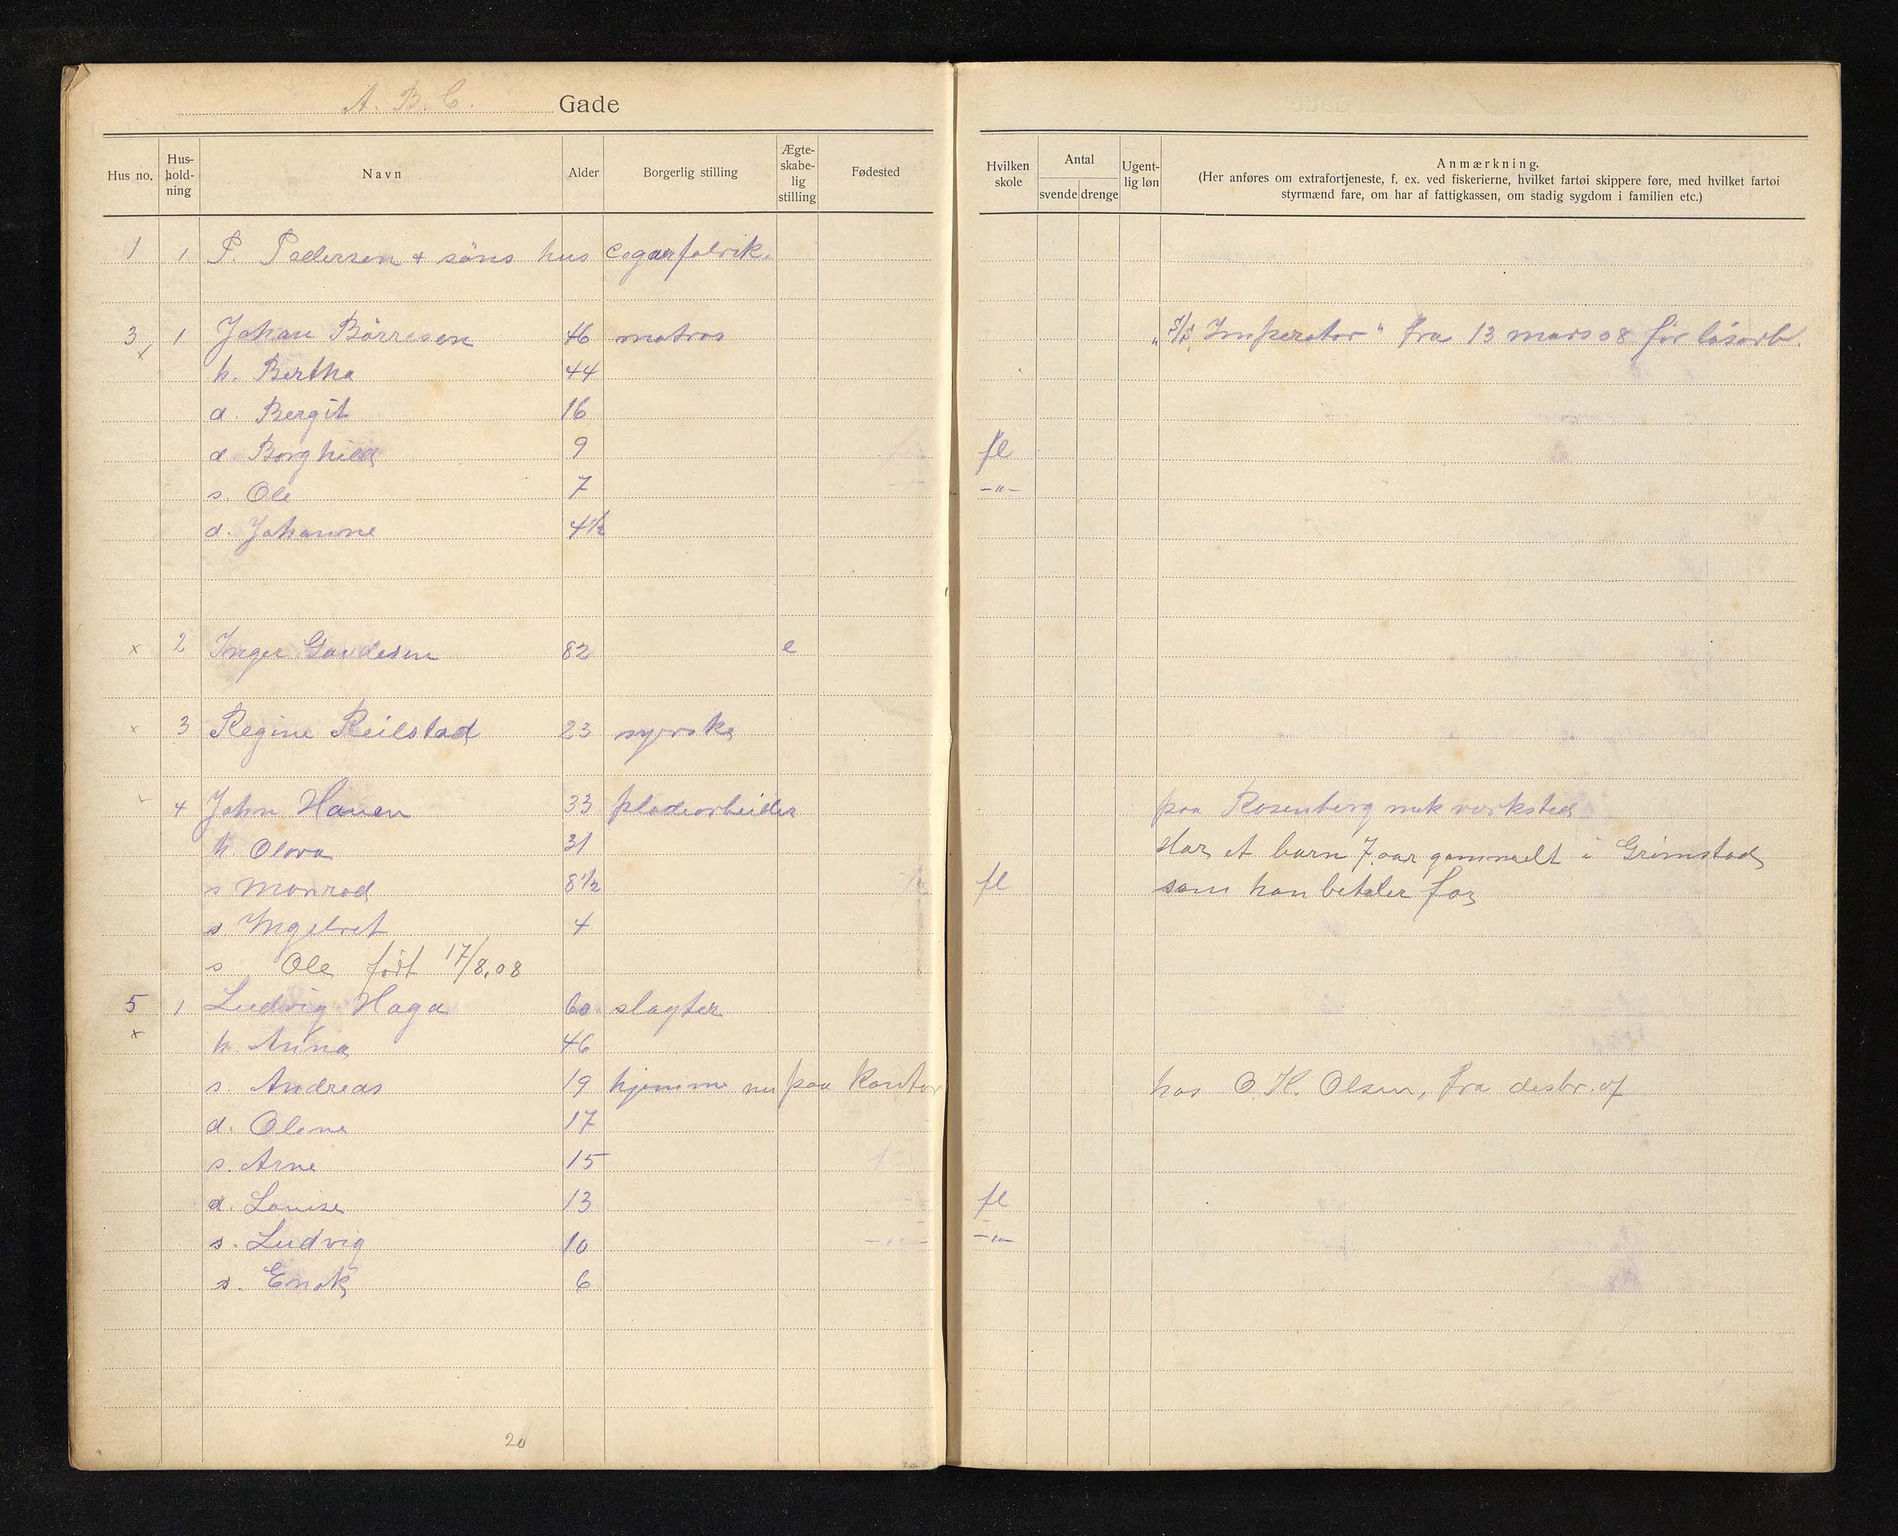 A. B. C. Gade
Hus no. Hus-hold-ning Navn Alder Borgerlig stilling Ægte-skabe-lig stilling Fødested Hvilken skole Antal svende drenge Ugent-lig løn Anmærkning.
(Her anføres om extrafortjeneste, f. ex. ved fiskerierne, hvilket fartøi skippere føre, med hvilket fartøi
styrmænd fare, om har af fattigkassen, om stadig sygdom i familien etc.)
1 1 P. Pedersen + søns hus cigarfabrik.
3 1 Johan Börresen 46 matros „S/S. Imperator" fra 13 mars 08 før løsarb.
x h. Bertha 44
d. Bergit 16
d. Borghild 9 fl
s. Ole 7 -"-
d. Johanne 4 1/2
x 2 Inger Gaudesen 82 e
x 3 Regine Reilstad 23 syerske
x 4 John Hauen 33 pladearbeider paa Rosenberg mek værksted
h. Olova 31 Har et barn 7 aar gammelt i Grimstad
s Monrad 8 1/2 fl som han betaler for
s. Ingebret 4
s Ole født 17/8.08
5 1 Ludvig Haga 60 slagter
x h. Anna 46
s. Andreas 19 hjemme nu paa kontor hos O. K. Olsen, fra desbr. of
d. Olene 17
s. Arne 15
d. Louise 13 fl
s. Ludvig 10 -"-
s. Enok 6
20